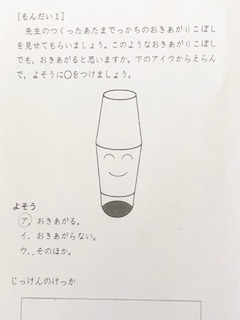 [もんだい1]
先生のつくったあたまでっかちのおきあがりこぼし
を見せてもらいましょう。このようなおきあがりこぼし
でも、おきあがると思いますか。下のアイウからえらん
で、よそうに○をつけましょう。
よそう
ア. おきあがる。
イ. おきあがらない。
ウ. そのほか。
じっけんのけっか